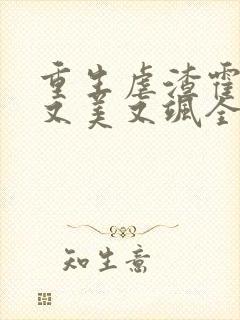 重生虐渣霍
又美又飒全
知生意